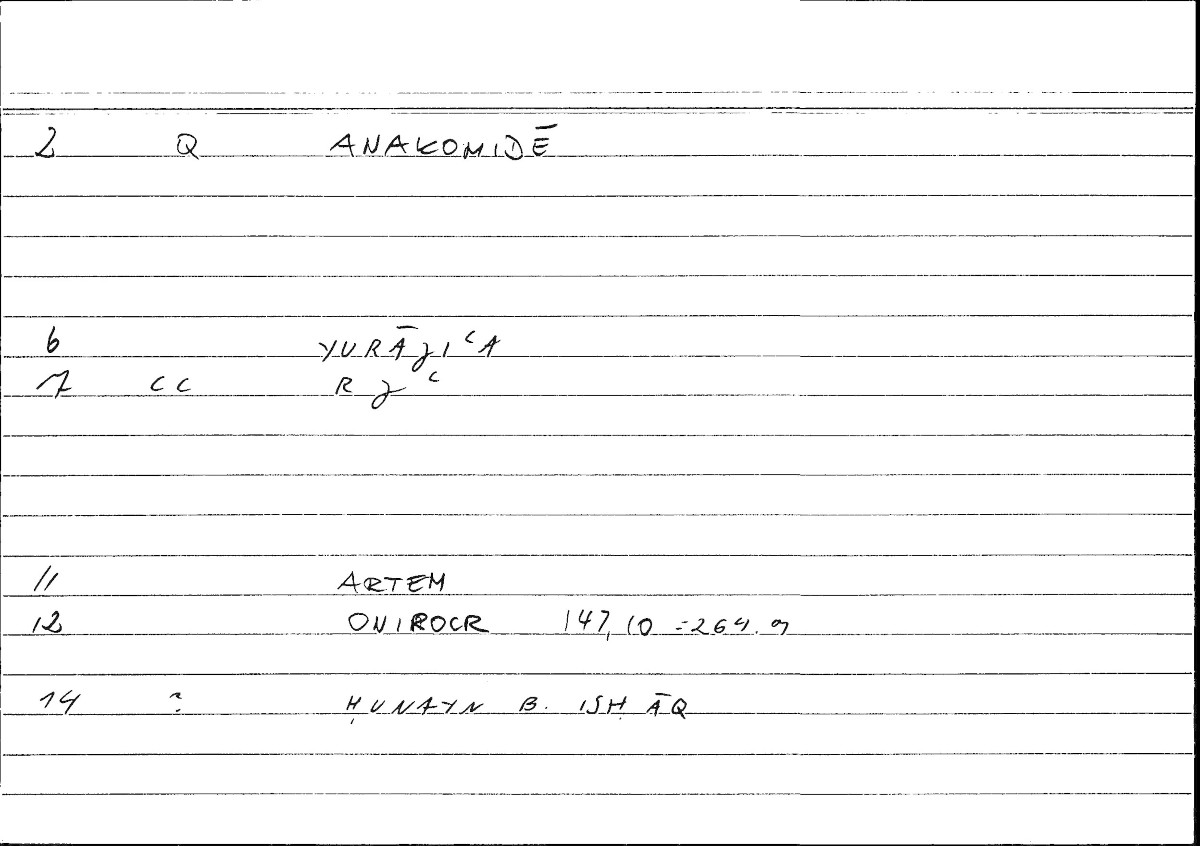 2 Q ANAKOMIDĒ
6 YURĀJIʿA
7 CC RJʿ
11 ARTEM
12 ONIROCR 147,10 = 264.9
14 ? ḤUNAYN B. ISḤĀQ